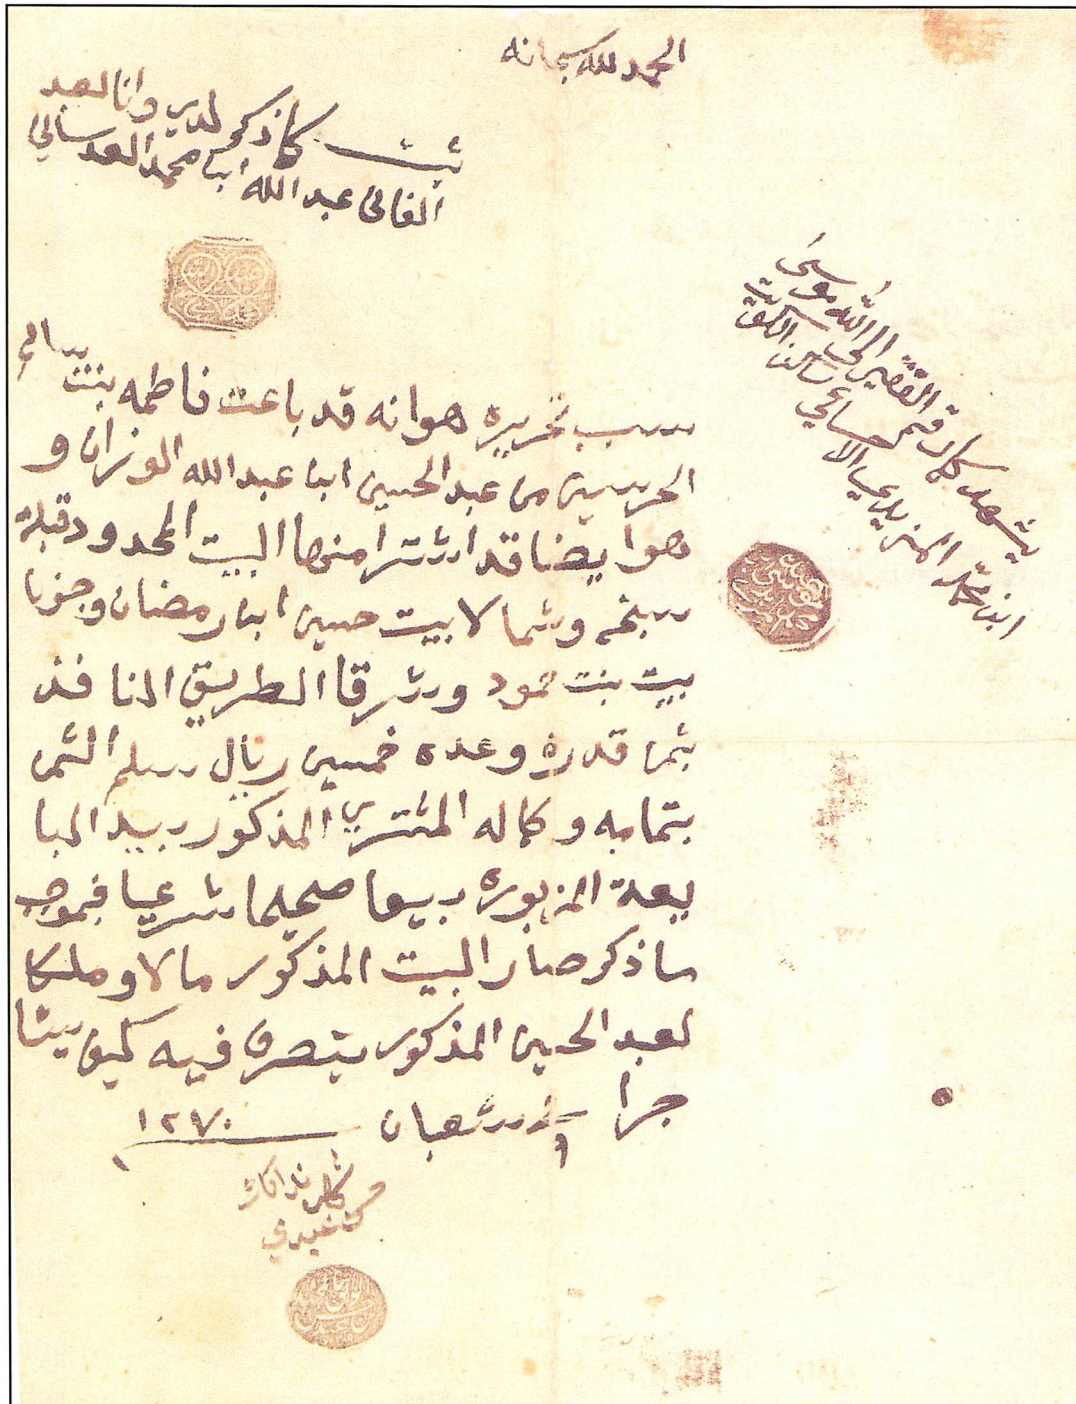 الحمد لله سبحانه
ثبت كما ذكر لدي وانا العبد
الفاني عبدالله ابن محمد العدساني
يشهد كارقم الفقير الى الله موسى
ابن محمد المزيدي الاحسائي ساكن الكويت
سبب تحريره هوانه قد باعت فاطمه بنت سالم
الحريبين من عبد الحسين ابن عبدالله الوزان و
هوا يضا قد اشترا منها البيت المحدود قبلة
وشمالا بيت حسين ابن رمضان وجنوبا
بيت بنت حمود وشرقا الطريق النافذ
بثمن قدره وعده خمسين ريال سلم الثمن
بتمامه وكماله المشتري المذكور بيد البا
يعة المزبوره بيعا صحيحا شرعيا فبموجب
ما ذكر صار البيت المذكور مالا وملكا
لعبد الحسين المذكور يتصرف فيه كيف يشا
جرا ٩ شعبان ١٢٧٠